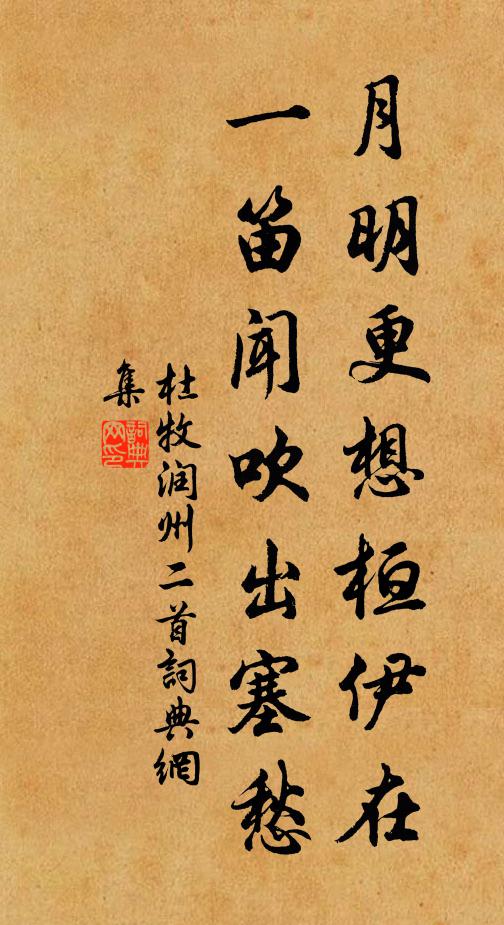 月明更想桓伊在
一笛闻吹出塞愁
杜牧润州二首詞典網
集
詞典
网印